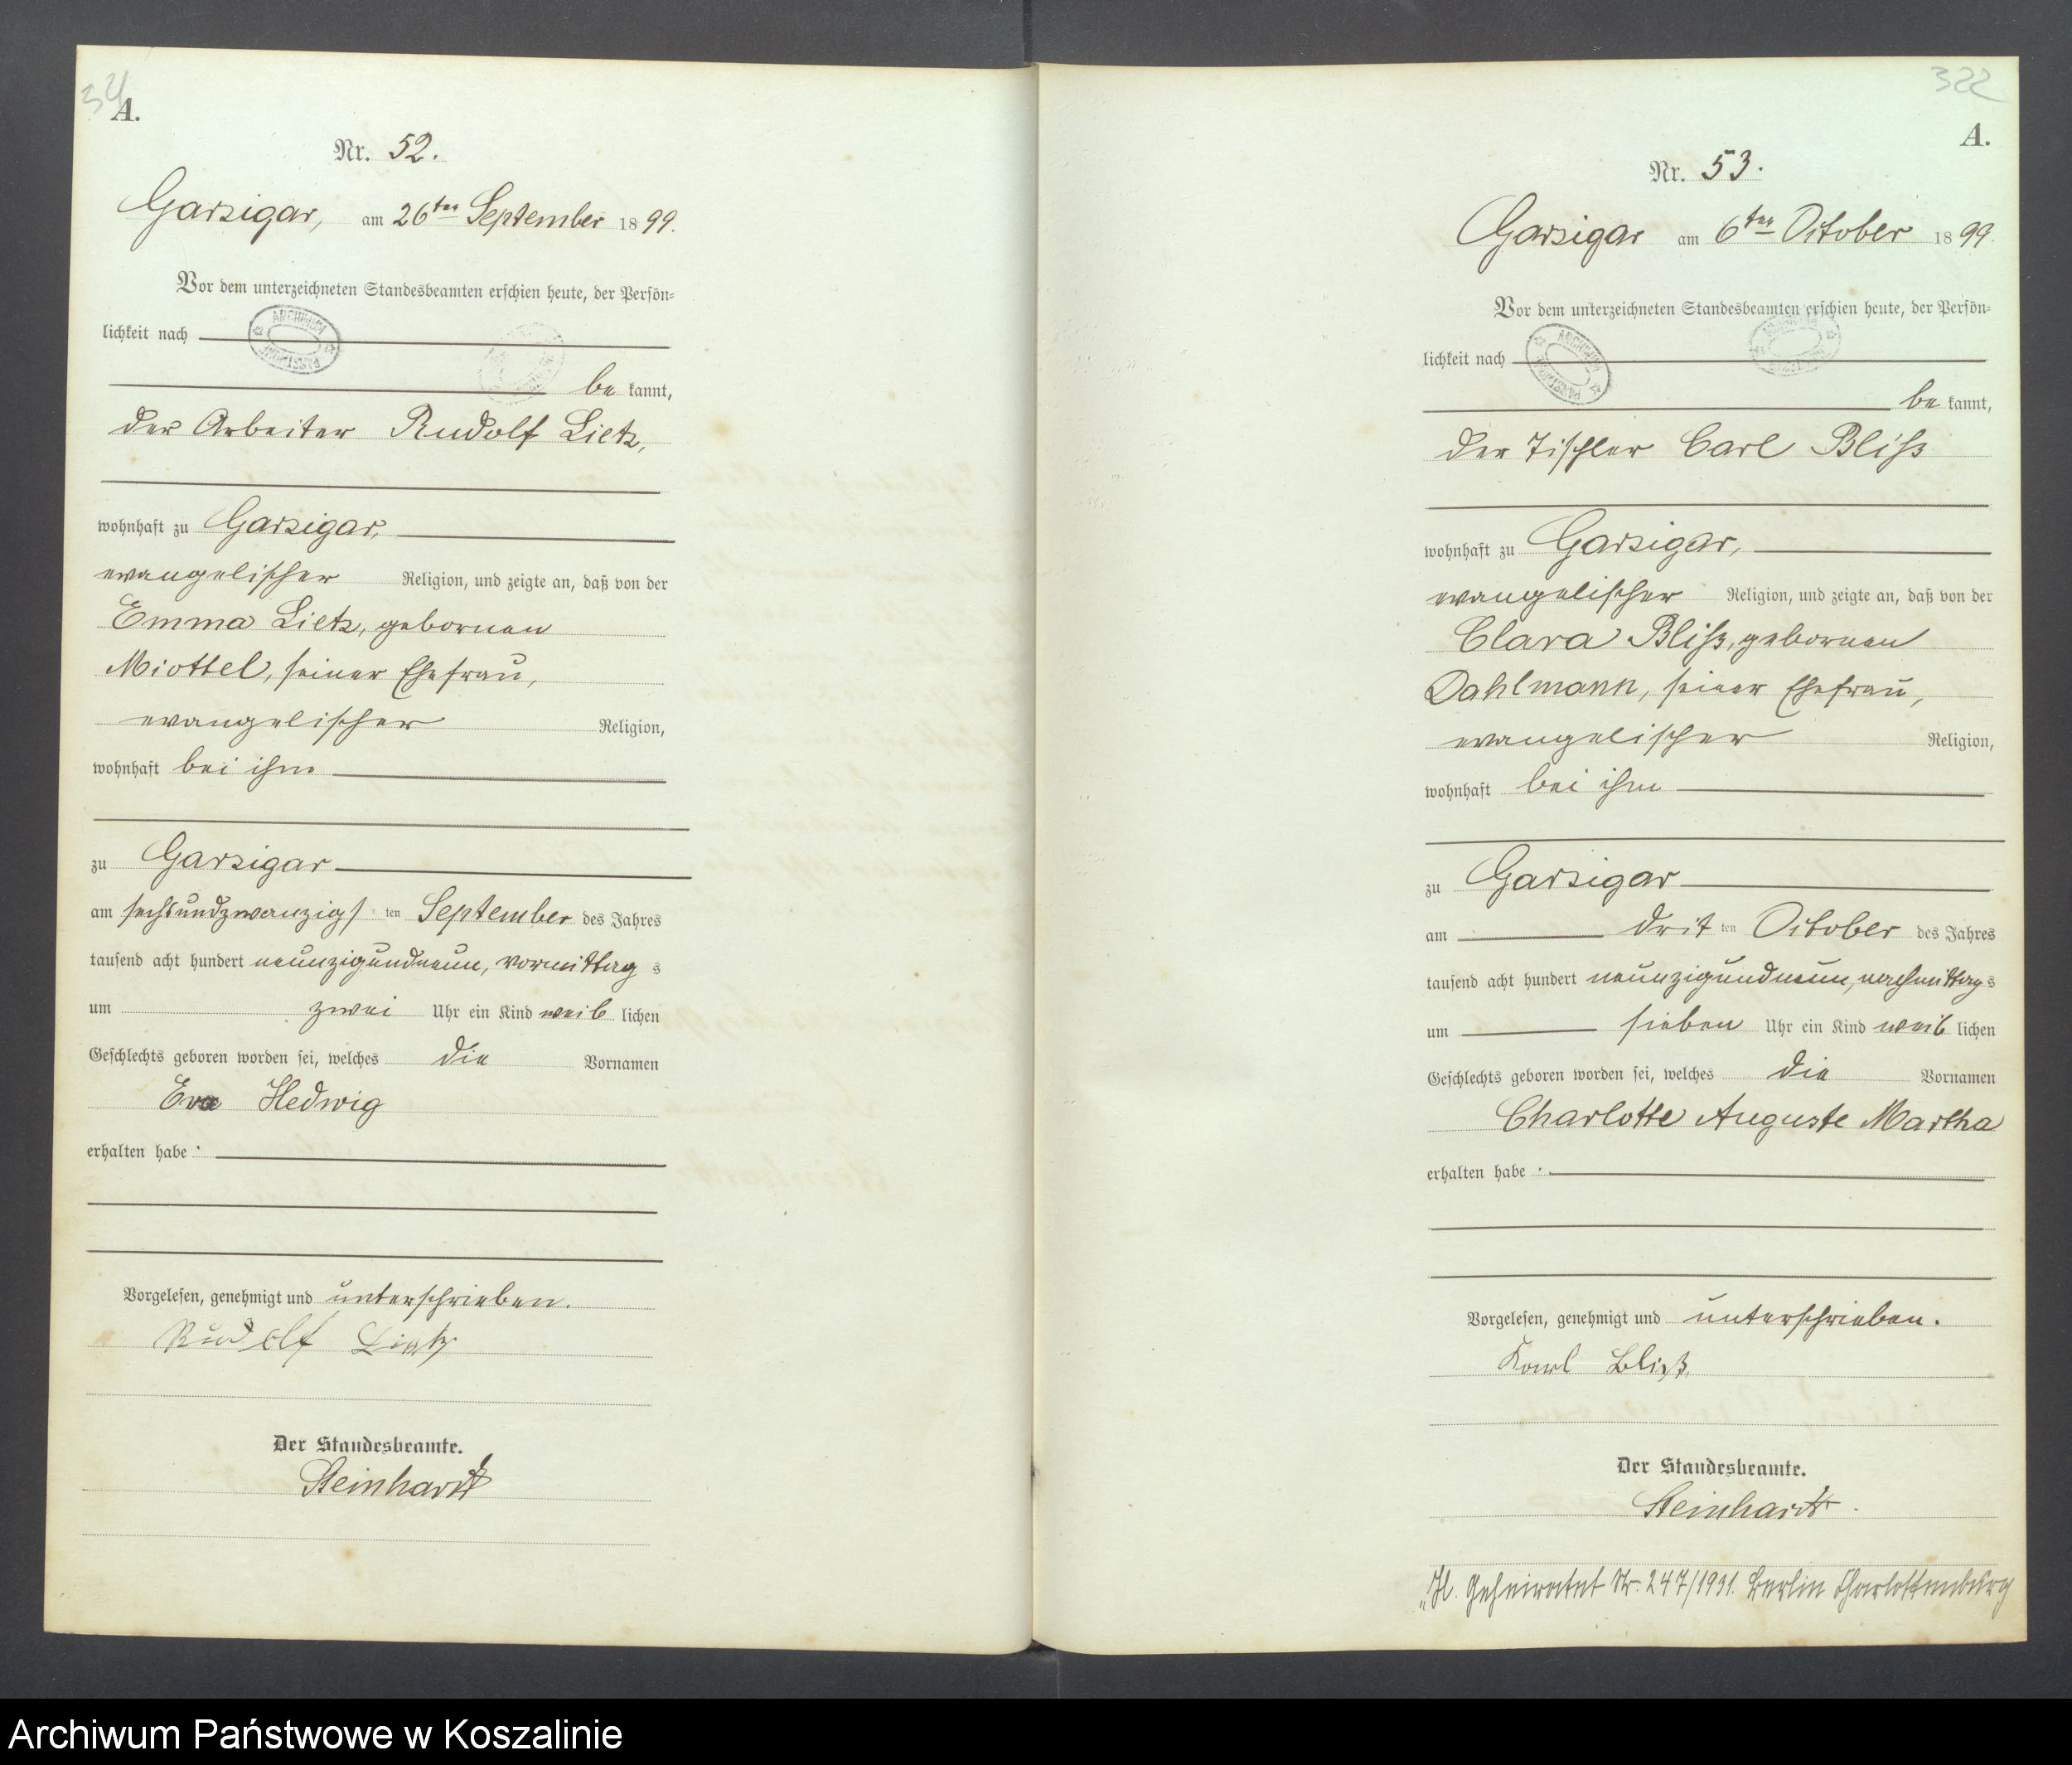 A.
Nr. 52.
Garzigar, am 26ten September 1899.
Vor dem unterzeichneten Standesbeamten erschien heute, der Persön-
lichkeit nach
be kannt,
der Arbeiter Rudolf Lietz,
wohnhaft zu Garzigar,
evangelischer Religion, und zeigte an, daß von der
Emma Lietz, gebornen
Miottel, seiner Ehefrau,
evangelischer Religion,
wohnhaft bei ihm
zu Garzigar
am sechsundzwanzigs ten September des Jahres
tausend acht hundert neunzigundneun, Vormittag s
um zwei Uhr ein Kind weib lichen
Geschlechts geboren worden sei, welches die Vornamen
Eva Hedwig
erhalten habe.
Vorgelesen, genehmigt und unterschrieben.
Rudolf Lietz
Der Standesbeamte.
Steinhardt
322
A.
Nr. 53.
Garzigar am 6ten October 1899.
Vor dem unterzeichneten Standesbeamten erschien heute, der Persön-
lichkeit nach
be kannt,
der Tischler Carl Bliß
wohnhaft zu Garzigar,
evangelischer Religion, und zeigte an, daß von der
Clara Bliß, gebornen
Dahlmann, seiner Ehefrau,
evangelischer Religion,
wohnhaft bei ihm
zu Garzigar
am drit ten October des Jahres
tausend acht hundert neunzigundneun, nachmittag s
um sieben Uhr ein Kind weib lichen
Geschlechts geboren worden sei, welches die Vornamen
Charlotte Auguste Martha
erhalten habe.
Vorgelesen, genehmigt und unterschrieben.
Karl Bliß.
Der Standesbeamte.
Steinhardt.
Geheiratet Nr. 247/1931. Berlin Charlottenburg
Archiwum Państwowe w Koszalinie